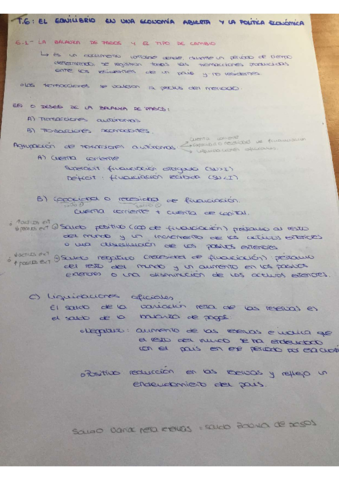 T.6: EL EQUILIBRIO EN UNA ECONOMÍA ABIERTA Y LA POLÍTICA ECONÓMICA
6.1- LA BALANZA DE PAGOS Y EL TIPO DE CAMBIO
Es un documento contable donde durante un periodo de tiempo
determinado se registran todas las transacciones producidas
entre los residentes de un país y no residentes
Las transacciones se valoran a precios del mercado.
DE LA BALANZA DE PAGOS:
A) transacciones autónomas
B) Transacciones
Agrupación de transacciones autónomas
Cuenta corriente
Capacidad o necesidad de financiación
Liquidaciones oficiales
A) Cuenta corriente
Superávit: financiación otorgada (S>I)
Déficit: financiación recibida (S<I)
B) Capacidad o necesidad de financiación
Cuenta corriente + cuenta de capital.
Saldo positivo (cap de financiación) préstamo al resto
del mundo y un incremento de los activos exteriores
o una disminución de los pasivos exteriores
Saldo negativo (necesidad de financiación) préstamo
del resto del mundo y un aumento en los pasivos
exteriores o una disminución de los activos exteriores.
C) Liquidaciones oficiales
El saldo de la variación neta de las reservas es
el saldo de la balanza de pagos.
Negativo: aumento de las reservas e indica que
el resto del mundo se ha endeudado
con el país en ese periodo
Positivo: reducción en las reservas y refleja un
endeudamiento del país.
Saldo neta reservas = saldo balanza de pagos